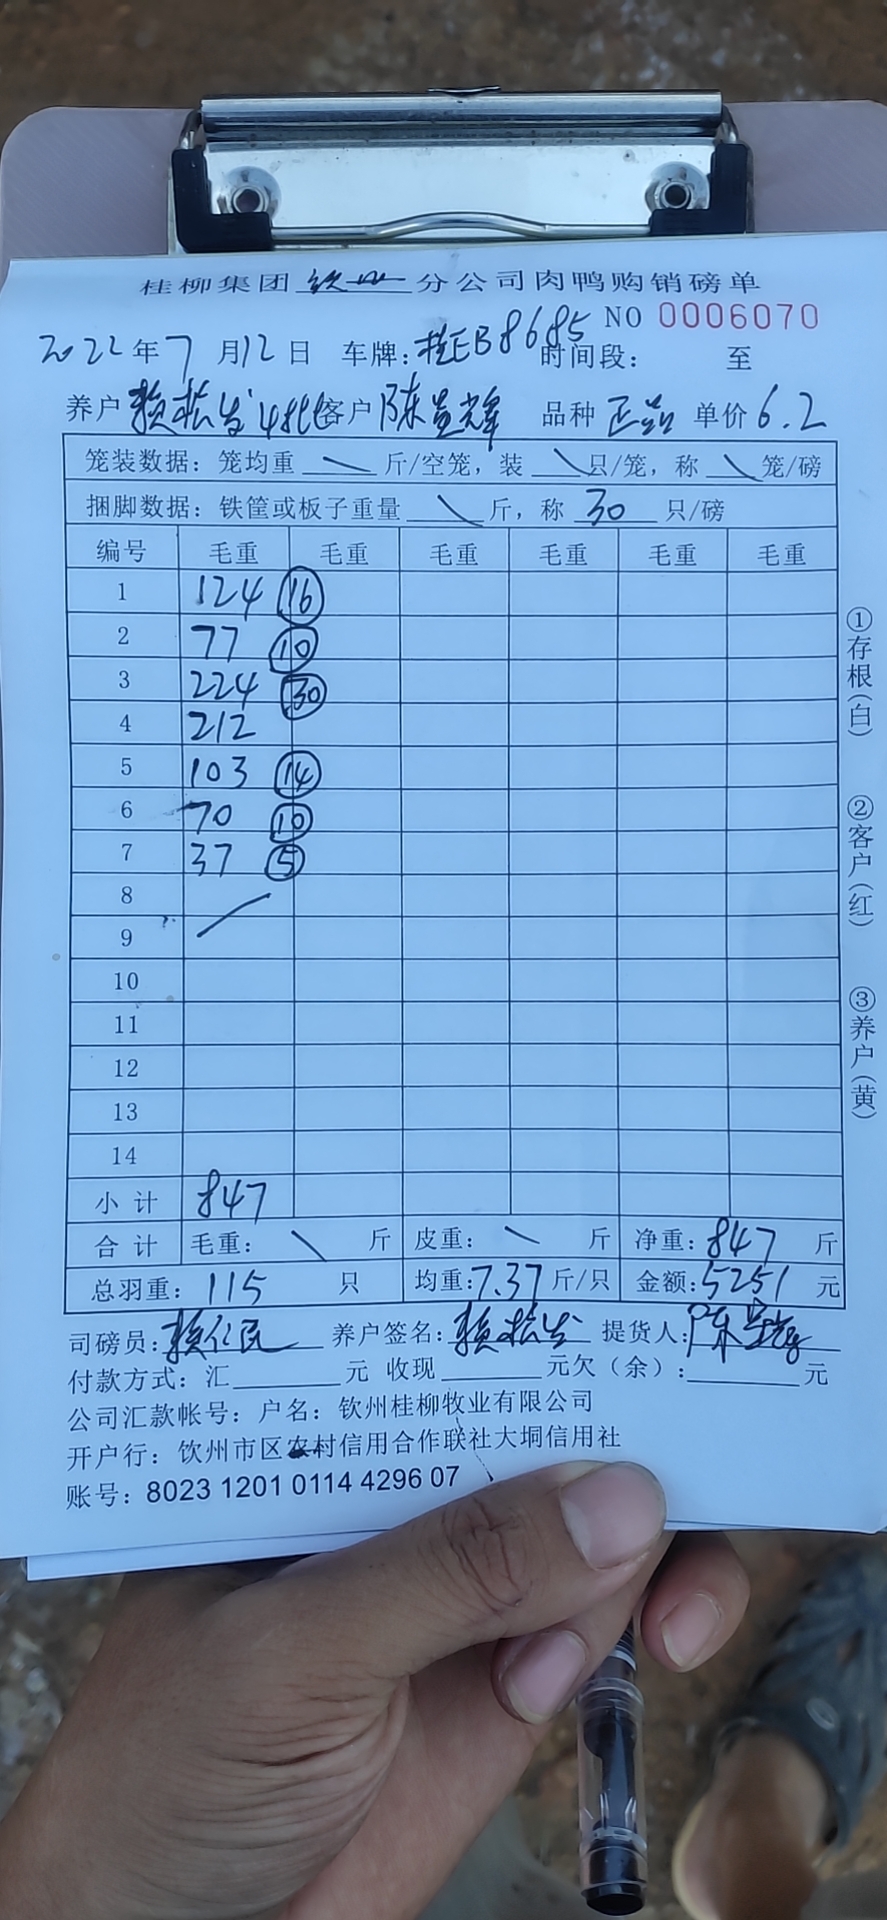 桂柳集团 钦州 分公司肉鸭购销磅单
NO 0006070
2022年7月12日 车牌:桂EB8685 时间段: 至
养户 赖松发 4批 客户 陈 辉 品种 正 单价 6.2
笼装数据:笼均重 \ 斤/空笼,装 \ 只/笼,称 \ 笼/磅
捆脚数据:铁筐或板子重量 \ 斤,称 30 只/磅
编号 毛重 毛重 毛重 毛重 毛重 毛重
1 124 ⑯
2 77 ⑩
3 224 ㉚
4 212
5 103 ⑭
6 70 ⑩
7 37 ⑤
8
9
10
11
12
13
14
小计 847
合计 毛重: \ 斤 皮重: \ 斤 净重: 847 斤
总羽重: 115 只 均重:7.37斤/只 金额:5251 元
司磅员:赖仁民 养户签名:赖松发 提货人:陈 辉
付款方式:汇 元 收现 元欠(余): 元
公司汇款帐号:户名:钦州桂柳牧业有限公司
开户行:钦州市区农村信用合作联社大垌信用社
账号:8023 1201 0114 4296 07
①存根(白)
②客户(红)
③养户(黄)